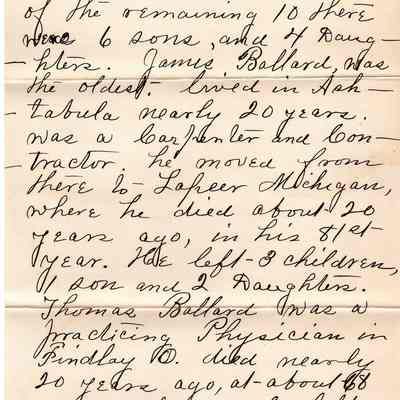 of the remaining 10 there
were 6 sons, and 4 Daug-
-hters. James Ballard, was
the oldest. lived in Ash-
-tabula nearly 20 years.
was a Carpenter and Con-
-tractor. he moved from
there to Lapeer Michigan,
where he died about 20
years ago, in his 81st
year. He left 3 children,
1 son and 2 Daughters.
Thomas Ballard was a
practicing Physician in
Findlay O. died nearly
20 years ago, at about 68